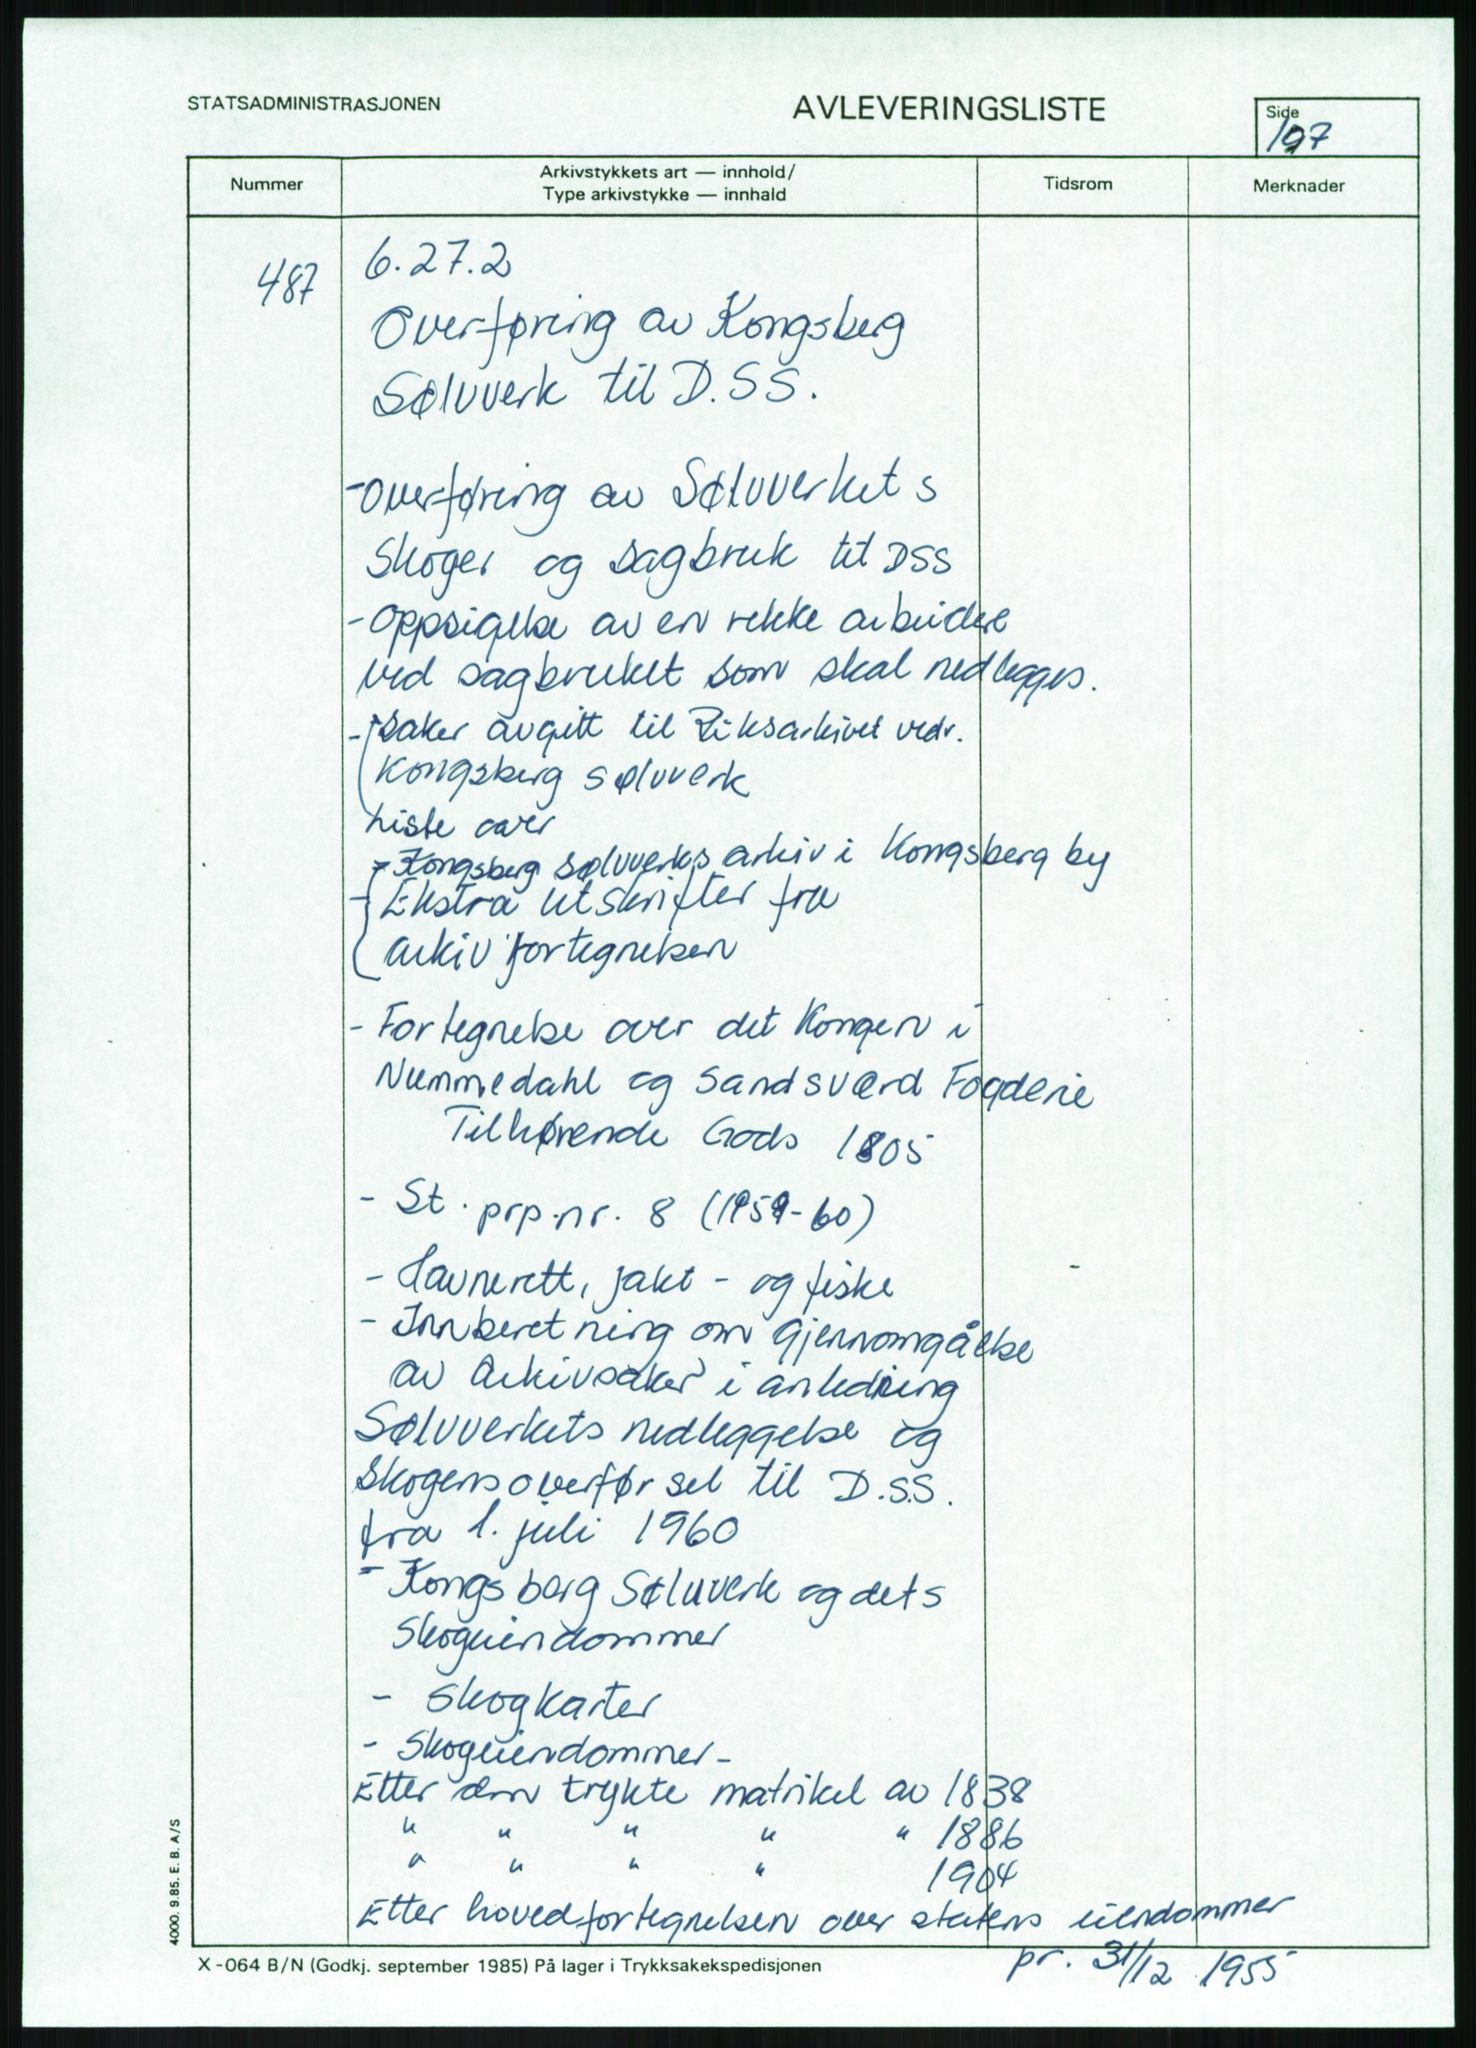 STATSADMINISTRASJONEN
AVLEVERINGSLISTE
Side
197
Nummer
Arkivstykkets art — innhold/
Type arkivstykke — innhald
Tidsrom
Merknader
487
6.27.2
Overføring av Kongsberg
Sølvverk til D.SS.
- Overføring av Sølvverkets
Skoger og sagbruk til DSS
- Oppsigelse av en rekke arbeidere
ved sagbruket som skal nedlegges.
- Saker avgitt til Riksarkivet vedr.
Kongsberg sølvverk
Liste over
- Kongsberg sølvverks arkiv i Kongsberg by
- Ekstra utskrifter fra
arkivfortegnelsen
- Fortegnelse over det Kongen i
Nummedahl og Sandsværd Fogderie
Tilhørende Gods 1805
- St. prp. nr. 8 (1959-60)
- Havnerett, jakt- og fiske
- Innberetning om gjennomgåelse
av Arkivsaker i anledning
Sølvverkets nedleggelse og
skogens overførsel til D.S.S.
fra 1. juli 1960
- Kongsberg Sølvverk og dets
Skogeiendommer
- Skogkarter
- Skogeiendommer -
Etter den trykte matrikel av 1838
" " " " " 1886
" " " " 1904
Etter hovedfortegnelsen over statens eiendommer
pr. 31/12 1955
4000. 9.85. E. B. A/S
X-064 B/N (Godkj. september 1985) På lager i Trykksakekspedisjonen